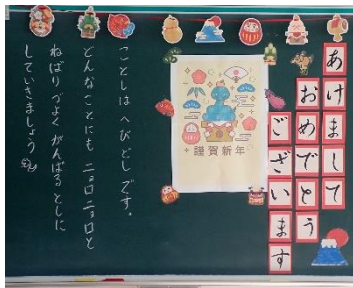 あけまして
おめでとう
ございます
謹賀新年
ことしは へびどしです。
どんなことにも ニョロニョロと
ねばりづよく がんばる としに
していきましょう